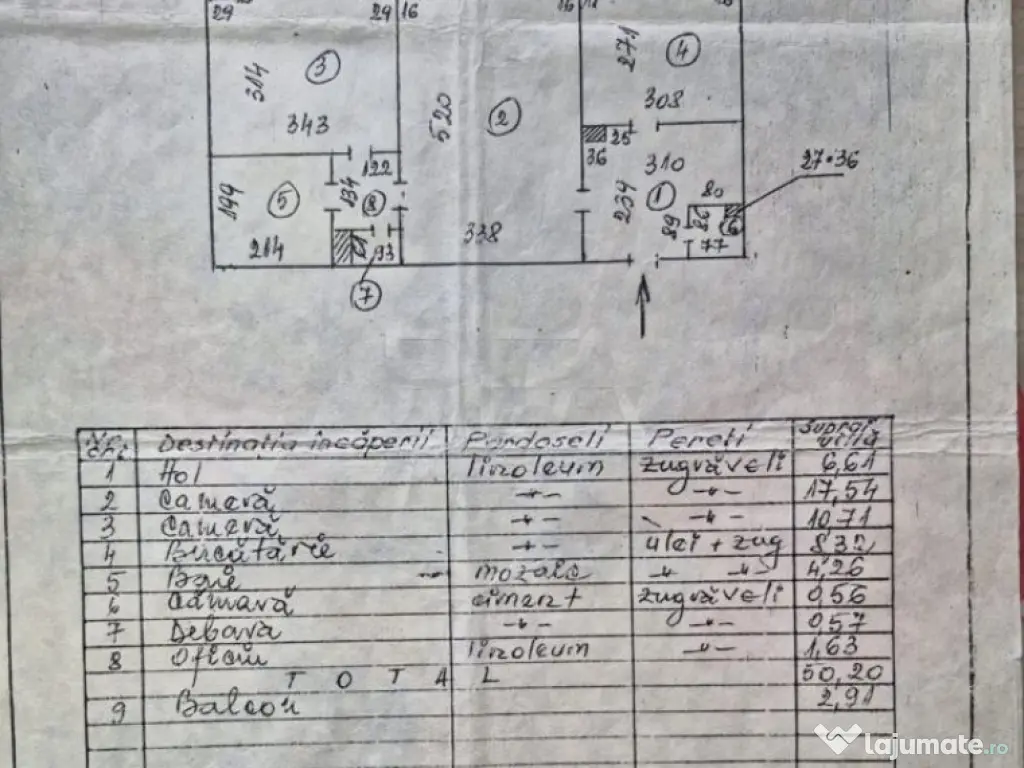 29 29 16 16
3 314 343
520 2 338
271 4 308
36 25 310
27*36
1 234 80
89 77
6
122 134 8
5 199 214
93
7
Destinația încăperii Pardoseli Pereți Supraf.
1 Hol linoleum zugrăveli 6,61
2 Cameră -"- -"- 17,54
3 Cameră -"- -"- 10,71
4 Bucătărie -"- ulei + zug 8,32
5 Baie mozaic -"- -"- 4,26
6 Cămară ciment zugrăveli 0,56
7 Debara -"- -"- 0,57
8 Oficiu linoleum -"- 1,63
TOTAL 50,20
9 Balcon 2,91
lajumate.ro